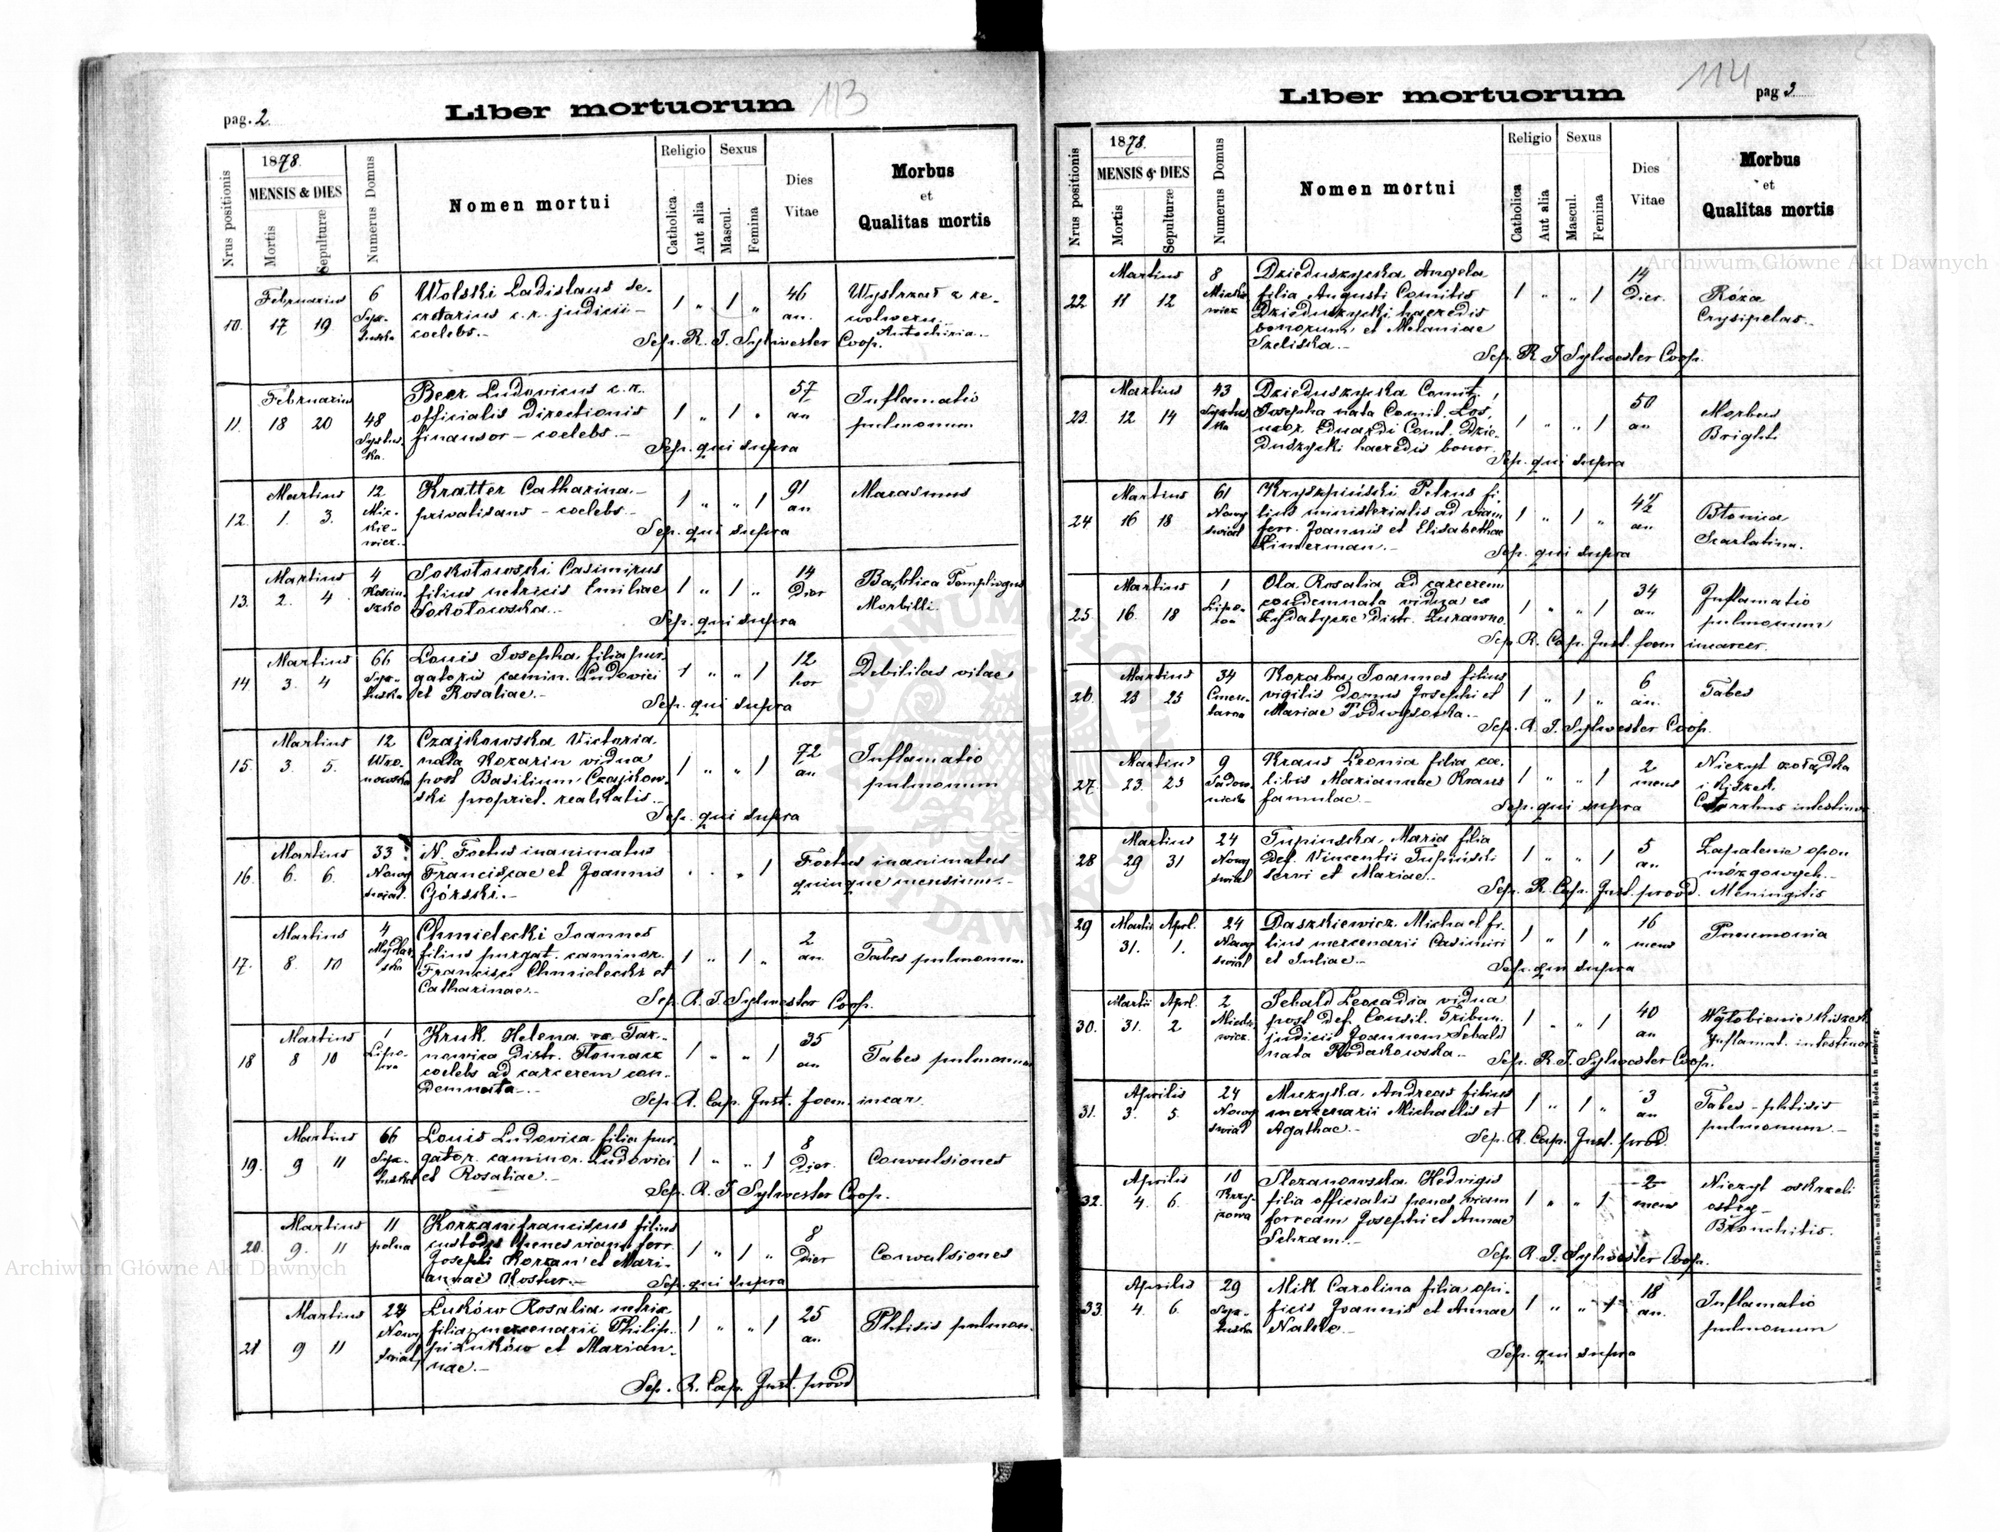 113
pag. 2.
Liber mortuorum
Nrus positionis
1878.
MENSIS & DIES
Mortis
Sepulturæ
Numerus Domus
Nomen mortui
Religio
Catholica
Aut alia
Sexus
Mascul.
Femina
Dies
Vitae
Morbus
et
Qualitas mortis
Februarius 6 Wolski Ladislaus se- 46 Wystrzał z re-
10. 17 19 cretarius c. r. judicii 1 " 1 " an. wolweru
coelebs.- Autochiria.-
Sep. R. J. Sylwester Coop.
Februarius Beer Ludovicus c. r. 57 Inflamatio
11. 18 20 48 officialis directionis 1 " 1 " an pulmonum
finansor - coelebs.-
Sep. qui supra
Martius 12 Kratter Catharina 91 Marasmus
12. 1. 3. Mic- privatisans - coelebs.- 1 " " 1 an
kie-
wicz.
Sep. qui supra
Martius 4 Sokołowski Casimirus 14
13. 2. 4 Kościu- filius netricis Emiliae 1 " 1 " Dier
szko Sokołowska.- Morbilli.
Sep. qui supra
Martius 66 Louis Josepha filia pur- 12 Debilitas vitae
14. 3. 4 gatoris camin. Ludovici 1 " " 1 hor
et Rosaliae.-
Sep. qui supra
Martius 12 Czajkowska Victoria 72 Inflamatio
15. 3. 5. Wro- nata Kozarin vidua 1 " " 1 an pulmonum
nowska post Basilium Czajkow-
ski propriet. realitatis.-
Sep. qui supra
Martius 33 N. Foetus inanimatus Foetus inanimatus
16. 6. 6. Nowy Franciscae et Joannis " 1 quinque mensium.-
świat Górski.-
Martius 4 Chmielecki Joannes 2
17. 8. 10 filius purgat. caminor. 1 " 1 " an. Tabes pulmonum
Francisci Chmielecki et
Catharinae.-
Sep. R. J. Sylwester Coop.
Martius 1 Kruk Helena ex Tar- 35
18 8 10 nawica Distr. Tłomacz 1 " " 1 an Tabes pulmonum
coelebs ad carcerem con-
demnata.-
Sep. R. Cap. Inst. foem. incar.
Martius 66 Louis Ludovica filia pur- 8
19. 9 11 gator. caminor. Ludovici 1 " " 1 Dier. Convulsiones
et Rosaliae.-
Sep. R. J. Sylwester Coop.
Martius 11 Korzan Franciscus filius 8
20. 9. 11 polna custodis penes viam ferr. 1 " 1 " Dier Convulsiones
Josephi Korzan et Mari-
annae Kostur.-
Sep. qui supra
Martius 24 Łuków Rosalia 25
21 9 11 Nowy filia mercenarii Philip- 1 " " 1 an. Phtisis pulmon.
świat pi Łuków et Marian-
nae.-
Sep. R. Cap. Inst. provd
114
Liber mortuorum
pag 3.
Nrus positionis
1878.
MENSIS & DIES
Mortis
Sepulturæ
Numerus Domus
Nomen mortui
Religio
Catholica
Aut alia
Sexus
Mascul.
Femina
Dies
Vitae
Morbus
et
Qualitas mortis
Martius 8 Dzieduszycka Angela 14
22 11 12 Mickie- filia Augusti Comitis 1 " " 1 Dier. Róża
wicz Dzieduszycki haeredis Erysipelas.-
bonorum et Melaniae
Szeliska.-
Sep. R. J. Sylwester Coop.
Martius 43 Dzieduszycka Comit. 50
23 12 14 Josepha nata Comit. Łoś, 1 " " 1 an Morbus
uxor Eduardi Comit. Dzie- Brighti
duszycki haeredis bonor.
Sep. qui supra
Martius 61 Kryszpiński Petrus fi- 4½
24 16 18 Nowy lius ministerialis ad viam 1 " 1 " an Błonica
świat ferr. Joannis et Elisabethae Scarlatina.
Zimerman.-
Sep. qui supra
Martius 1 Ola Rosalia ad carcerem 34 Inflamatio
25. 16. 18 condemnata vidua ex 1 " " 1 an pulmonum
distr. Żurawno.
Sep. R. Cap. Inst. foem incarcer.
Martius 34 Kozaba Joannes filius 6 Tabes
26. 23 25 Cmen- vigilis domus Josephi et 1 " 1 " an.
tarna Mariae Podwysocka.-
Sep. R. J. Sylwester Coop.
Martius 9 Kraus Leonia filia cae- 2 Nieżyt żołądka
27. 23. 25 libis Mariannae Kraus 1 " " 1 mens i kiszek
famulae.- Catarrhus intestinor.
Sep. qui supra
Martius 24 Tupinska Maria filia 5 Zapalenie opon
28 29 31 Nowy Def. Vincentii Tupiński 1 " " 1 an mózgowych.-
świat servi et Mariae.- Meningitis
Sep. R. Cap. Inst. provd.
29 Martii Apri. 24 Daszkiewicz Michael fi- 16 Pneumonia
31. 1. Nowy lius mercenarii Casimiri 1 " 1 " mens
świat et Juliae.-
Sep. qui supra
Martii Apri. 2 Sebald Leocadia vidua 40
30. 31. 2 post Def. Consil. Tribun. 1 " " 1 an
judicii Joannem Sebald Inflamat. intestinor
nata Rodakowska.-
Sep. R. J. Sylwester Coop.
Aprilis 24 Muzyka Andreas filius 3 Tabes - phtisis
31. 3. 5. Nowy mercenarii Michaelis et 1 " 1 " an pulmonum.-
świat Agathae.-
Sep. R. Cap. Inst. prvd.
Aprilis 10 Hedvigis 2 Nieżyt oskrzeli
32. 4. 6. filia officialis penes viam 1 " " 1 mens ostry-
ferream Josephi et Annae Bronchitis.
Schram.-
Sep. R. J. Sylwester Coop.
Aprilis 29 Mitt Carolina filia opi- 18 Inflamatio
33. 4. 6. ficis Joannis et Annae 1 " " 1 an. pulmonum
Sep. qui supra
Aus der Buch- und Schreibhandlung des H. Bodek in Lemberg.
Archiwum Główne Akt Dawnych
Archiwum Główne Akt Dawnych
ARCHIWUM GŁÓWNE AKT DAWNYCH